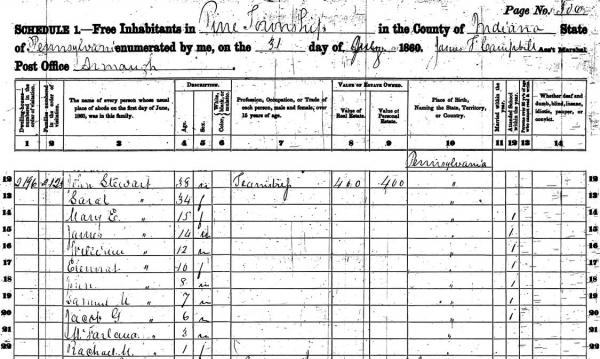 Page No. 300
SCHEDULE 1.—Free Inhabitants in Pine Township in the County of Indiana State
of Pennsylvania enumerated by me, on the 31 day of July 1860. James T Campbell Ass't Marshal
Post Office Armaugh
Dwelling-houses— numbered in the order of visitation.
Families numbered in the order of visitation.
The name of every person whose usual place of abode on the first day of June, 1860, was in this family.
DESCRIPTION.
Age.
Sex.
Color,
Profession, Occupation, or Trade of each person, male and female, over 15 years of age.
VALUE OF ESTATE OWNED.
Value of Real Estate.
Value of Personal Estate.
Place of Birth, Naming the State, Territory, or Country.
Married within the year.
Attended School within the year.
Whether deaf and dumb, blind, insane, idiotic, pauper, or convict.
1 2 3 4 5 6 7 8 9 10 11 12 13 14
Pennsylvania
12 Stewart 38 m 400 400 " 12
13 Sarah " 34 f " 13
14 Mary E. " 15 f " 1 14
15 James " 14 m " 1 15
16 William " 12 m " 1 16
17 " 10 f " 1 17
18 " 8 m " 1 18
19 Samuel " 7 m " 1 19
20 Jacob G " 6 m " 1 20
21 McFarland " 3 m " 21
22 Rachael M. " 1 f " 22